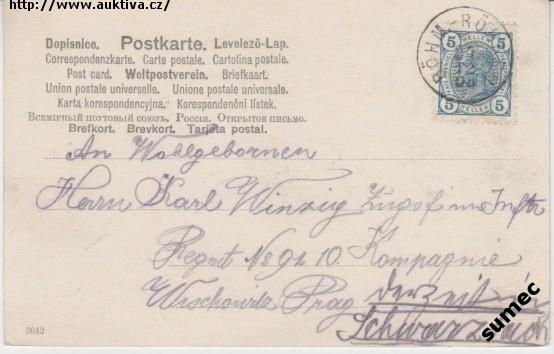 http://www.auktiva.cz/
Dopisnice. Postkarte. Levelező-Lap.
Correspondenzkarte. Carte postale. Cartolina postale.
Post card. Weltpostverein. Briefkaart.
Union postale universelle. Unione postale universale.
Karta korespondencyjna. Korespondenční lístek.
Всемірный почтовый союзъ. Россія. Открытое письмо.
Brefkort. Brevkort. Tarjeta postal.
BÖHM-RÖ
HELLER
5 5
5 5
HELLER
An Wohlgebornen
Herrn Karl Winzig Zugsf im Inftr
Regmt No 91 10. Kompagnie
Wrschowitz Prag derzeit in
Schwarzbach
3642
sumec